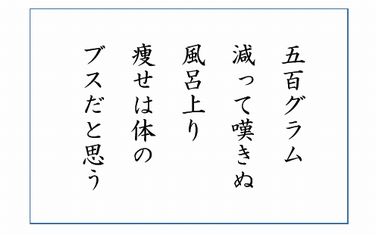 五百グラム
減って嘆きぬ
風呂上り
痩せは体の
ブスだと思う